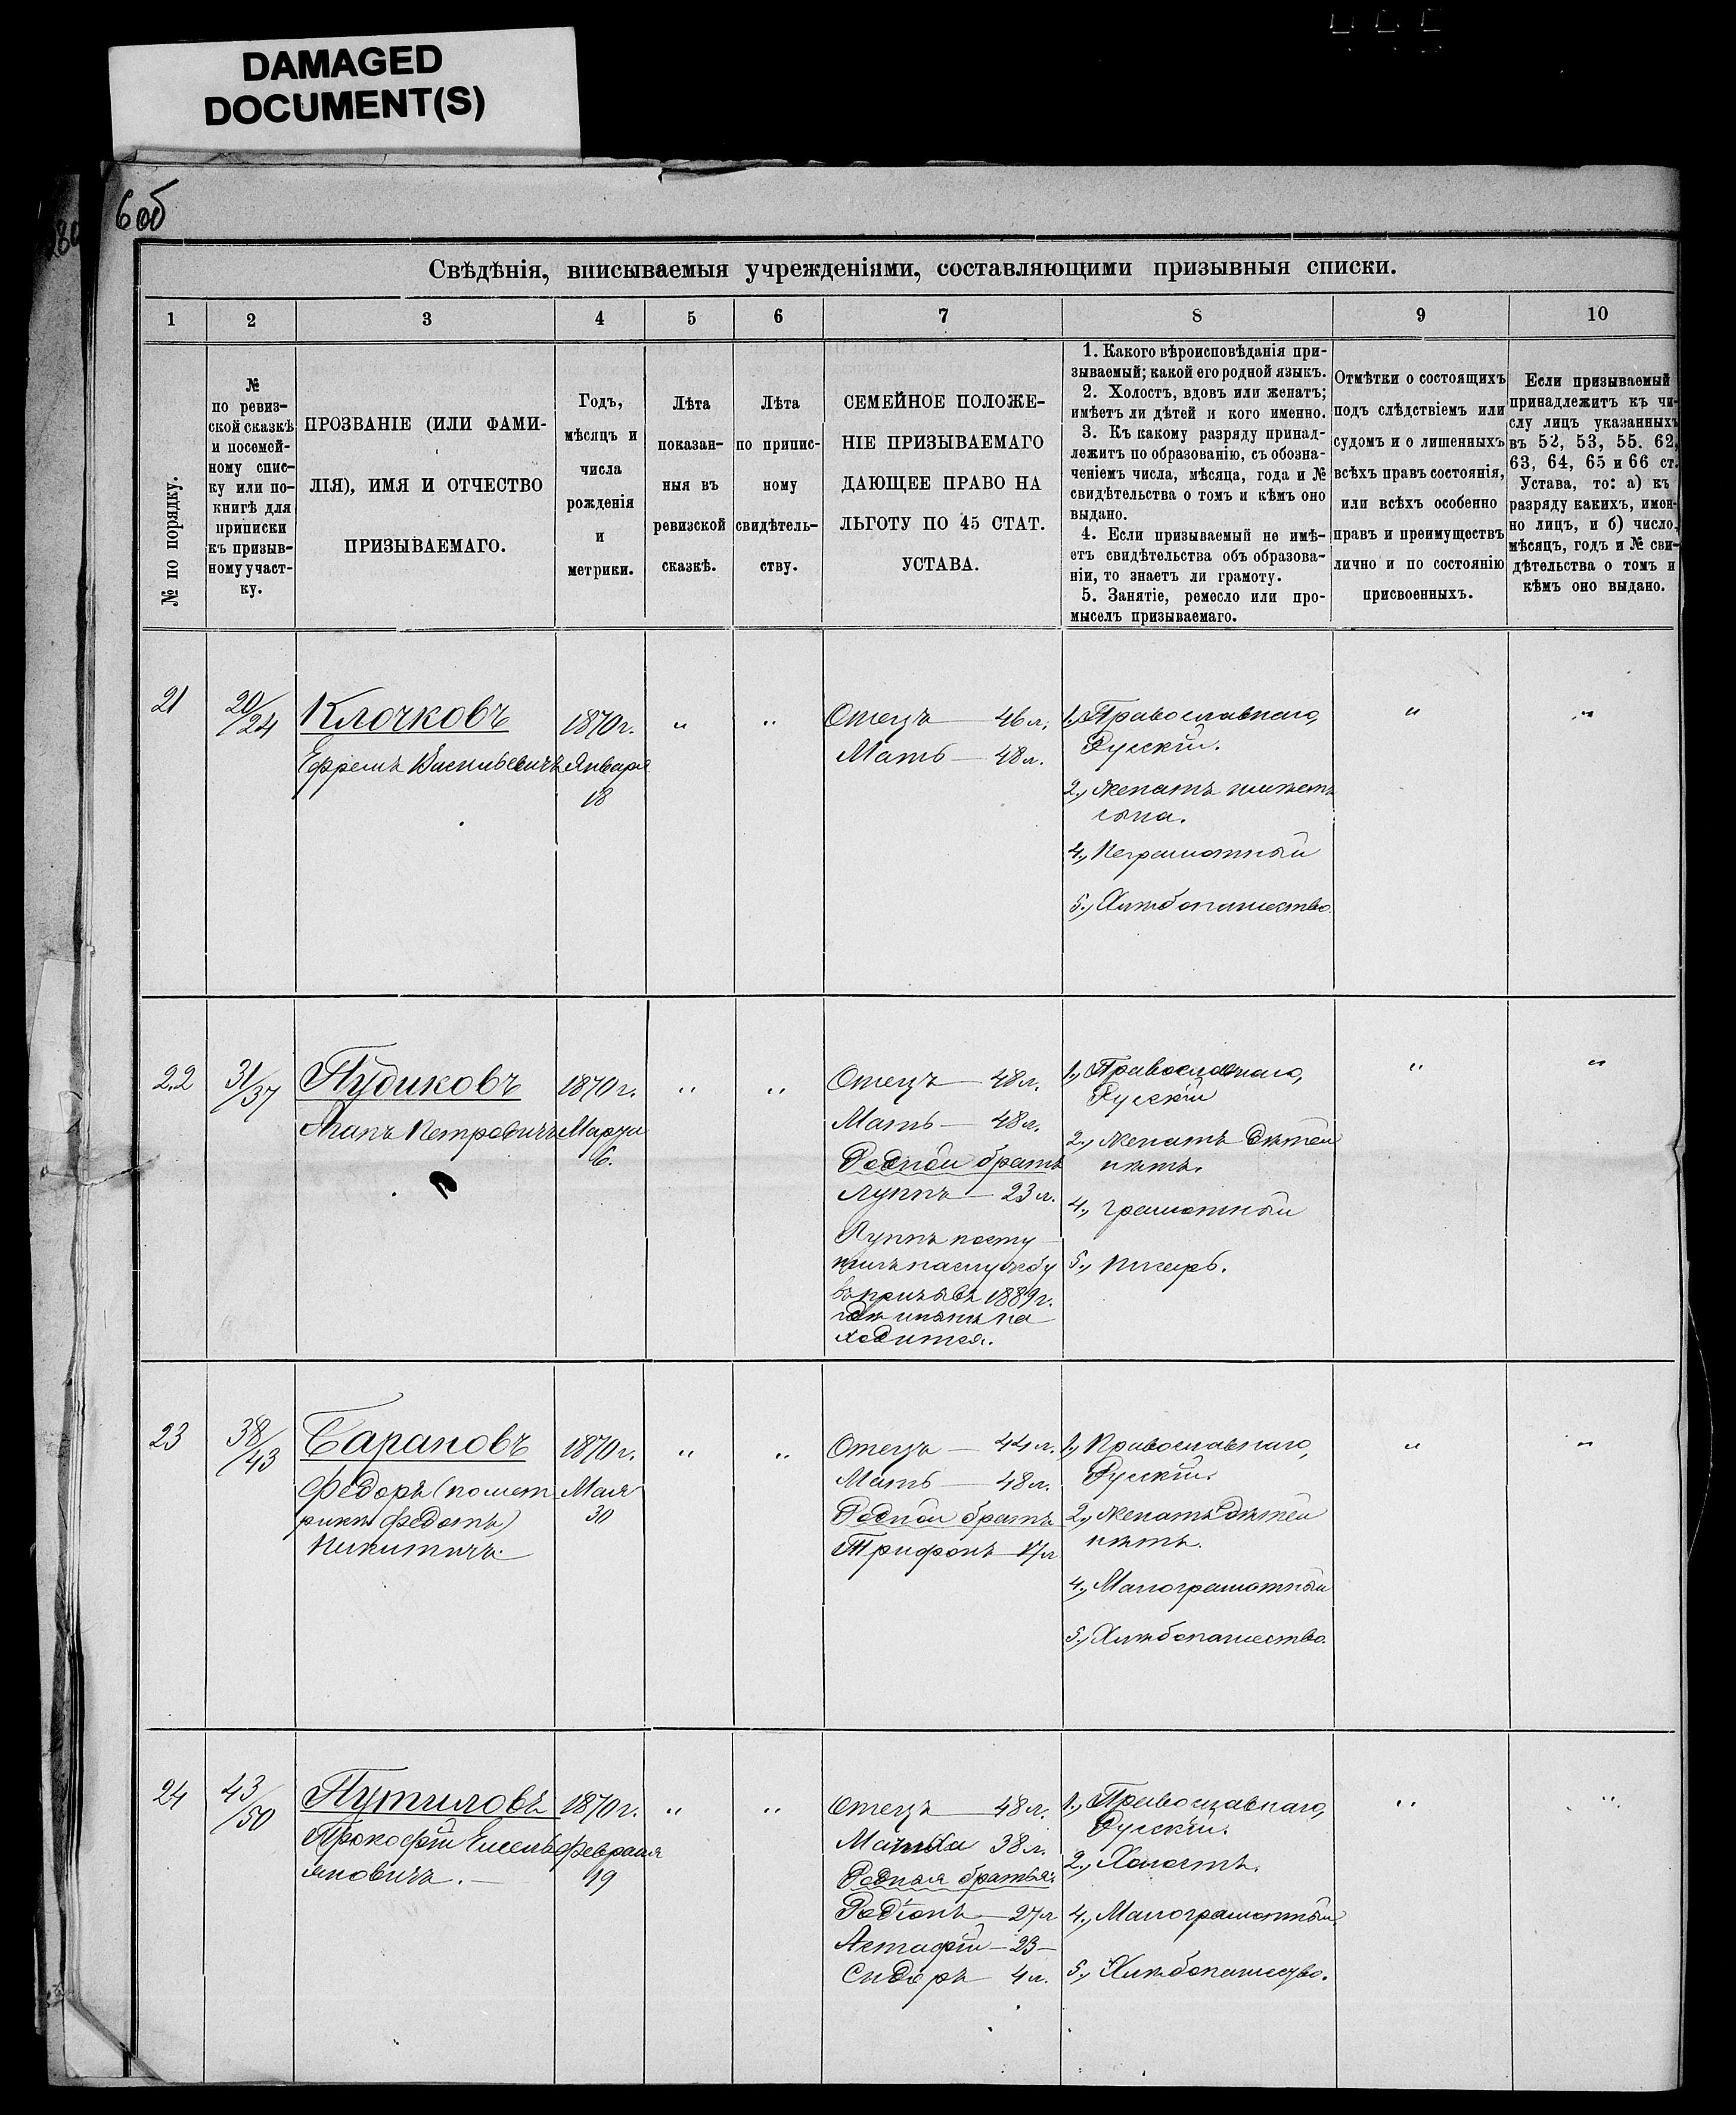 DAMAGED
DOCUMENT(S)
6об
Свѣдѣнія, вписываемыя учрежденіями, составляющими призывныя списки.
1 2 3 4 5 6 7 8 9 10
№ по порядку.
№
по ревиз-
ской сказкѣ
и посемей-
ному спис-
ку или по-
книгѣ для
приписки
къ призыв-
ному участ-
ку.
ПРОЗВАНІЕ (ИЛИ ФАМИ-
ЛІЯ), ИМЯ И ОТЧЕСТВО
ПРИЗЫВАЕМАГО.
Годъ,
мѣсяцъ и
числа
рожденія
и
метрики.
Лѣта
показан-
ныя въ
ревизской
сказкѣ.
Лѣта
по припис-
ному
свидѣтель-
ству.
СЕМЕЙНОЕ ПОЛОЖЕ-
НІЕ ПРИЗЫВАЕМАГО
ДАЮЩЕЕ ПРАВО НА
ЛЬГОТУ ПО 45 СТАТ.
УСТАВА.
1. Какого вѣроисповѣданія при-
зываемый; какой его родной языкъ.
2. Холостъ, вдовъ или женатъ;
имѣетъ ли дѣтей и кого именно.
3. Къ какому разряду принад-
лежитъ по образованію, съ обозна-
ченіемъ числа, мѣсяца, года и №
свидѣтельства о томъ и кѣмъ оно
выдано.
4. Если призываемый не имѣ-
етъ свидѣтельства объ образова-
ніи, то знаетъ ли грамоту.
5. Занятіе, ремесло или про-
мыселъ призываемаго.
Отмѣтки о состоящихъ
подъ слѣдствіемъ или
судомъ и о лишенныхъ
всѣхъ правъ состоянія,
или всѣхъ особенно
правъ и преимуществъ
лично и по состоянію
присвоенныхъ.
Если призываемый
принадлежитъ къ чи-
слу лицъ указанныхъ
въ 52, 53, 55. 62,
63, 64, 65 и 66 ст.
Устава, то: а) къ
разряду какихъ, имен-
но лицъ, и б) число,
мѣсяцъ, годъ и № сви-
дѣтельства о томъ и
кѣмъ оно выдано.
21
20/24
Клочковъ
Ефремъ Васильевичъ
1870 г.
Января
18
"
"
Отецъ — 46 л.
Мать — 48 л.
1., Православнаго,
Русскій.
2., Женатъ имѣетъ
сына.
4., Неграмотный
5., Хлѣбопашество.
"
"
22
31/37
Пудиковъ
Агапъ Петровичъ
1870 г.
Марта
6.
"
"
Отецъ — 48 л.
Мать — 48 л.
Родной братъ
Луппъ — 23 л.
Луппъ посту-
пилъ на службу
въ призывъ 1889 г.
гдѣ нынѣ на
ходится.
1., Православнаго,
Русскій
2., Женатъ дѣтей
нѣтъ.
4., Грамотный
5., Писарь.
"
"
23
38/43
Барановъ
Федоръ (по мет
рикѣ Федотъ)
Никитичъ.
1870 г.
Мая
30
"
"
Отецъ — 44 л.
Мать — 48 л.
Родной братъ
Трифонъ — 17 л
1., Православнаго,
Русскій.
2., Женатъ дѣтей
нѣтъ.
4., Малограмотный
5., Хлѣбопашество.
"
"
24
43/50
Путиловъ
Прокофій Емель
яновичъ. —
1870 г.
Февраля
19
"
"
Отецъ — 48 л.
Мачиха 38 л.
Родныя братья:
Родіонъ — 27 л
Астафій — 23 —
Сидоръ — 4 л.
1., Православнаго,
Русскій.
2., Холостъ.
4., Малограмотный.
5., Хлѣбопашество.
"
"